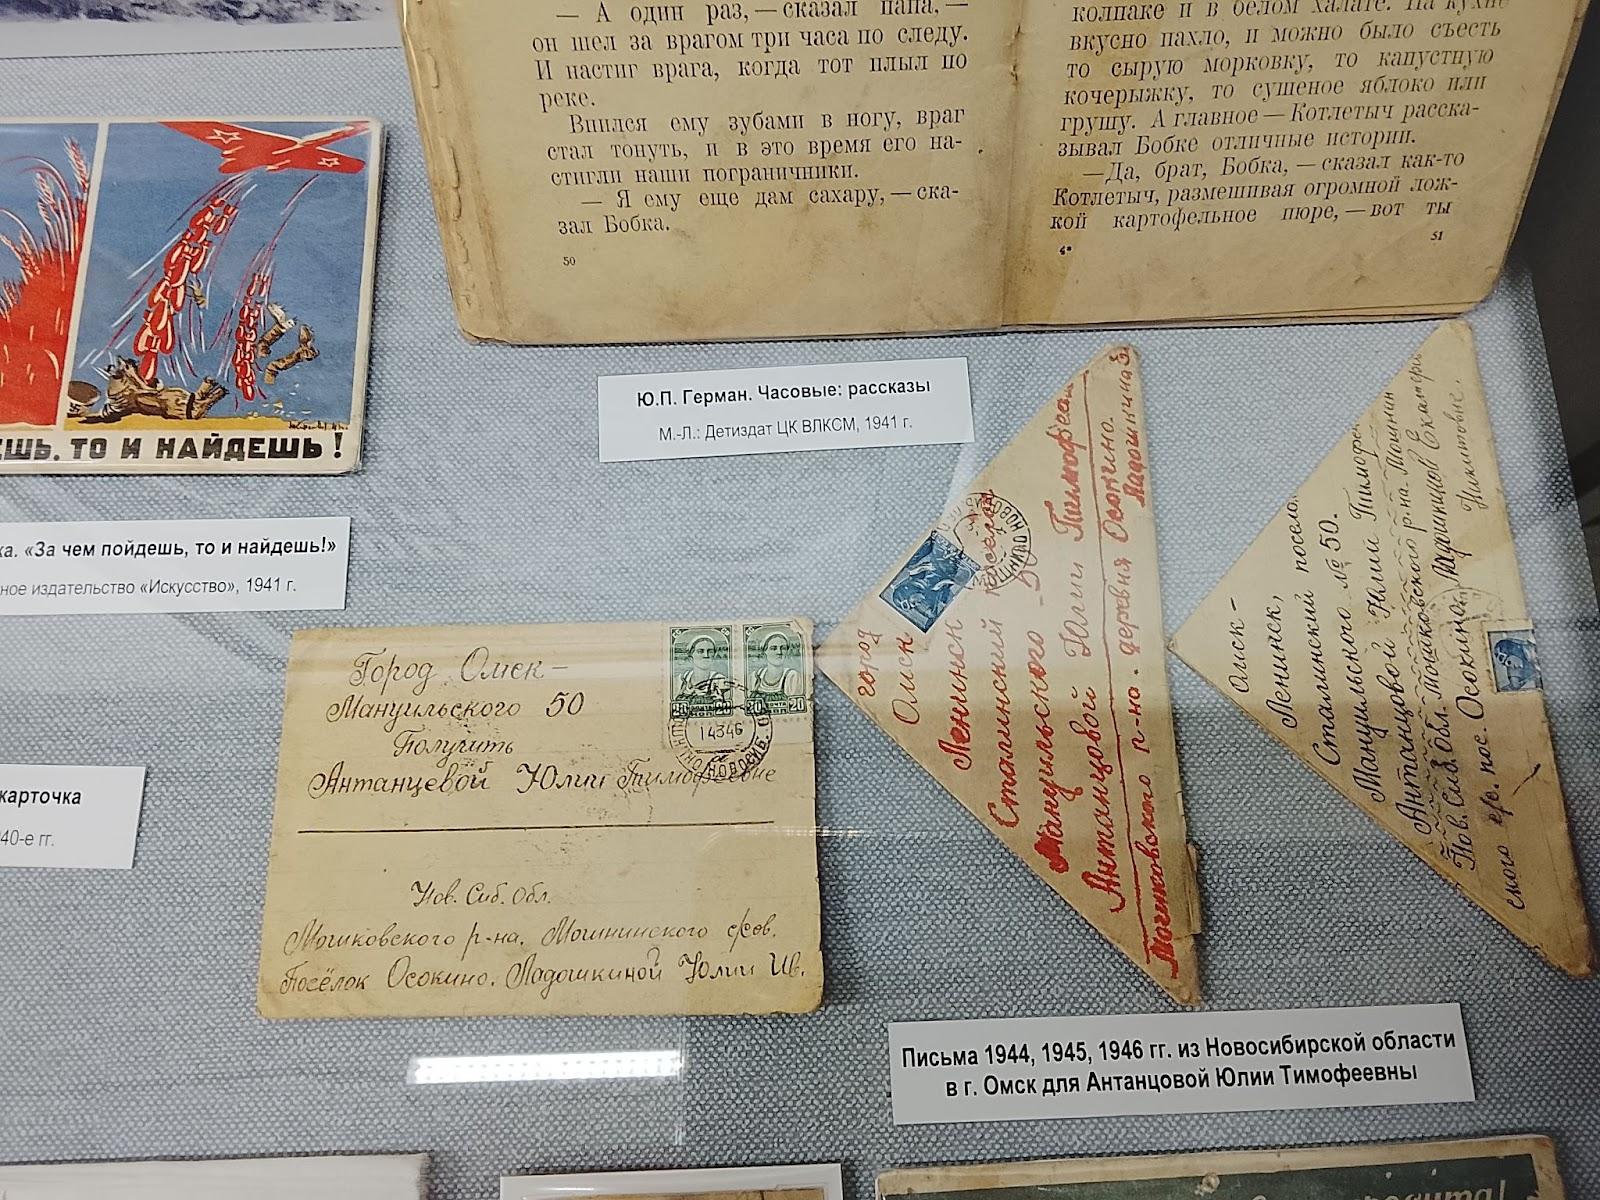 — А один раз, — сказал папа, —
он шел за врагом три часа по следу.
И настиг врага, когда тот плыл по
реке.
Впился ему зубами в ногу, враг
стал тонуть, и в это время его на-
стигли наши пограничники.
— Я ему еще дам сахару, — ска-
зал Бобка.
50
колпаке и в белом халате. На кухне
вкусно пахло, и можно было съесть
то сырую морковку, то капустную
кочерыжку, то сушеное яблоко или
грушу. А главное — Котлетыч расска-
зывал Бобке отличные истории.
— Да, брат, Бобка, — сказал как-то
Котлетыч, размешивая огромной лож-
кой картофельное пюре, — вот ты
4*
51
ЕШЬ, ТО И НАЙДЕШЬ!
ка. «За чем пойдешь, то и найдешь!»
ное издательство «Искусство», 1941 г.
карточка
40-е гг.
Ю.П. Герман. Часовые: рассказы
М.-Л.: Детиздат ЦК ВЛКСМ, 1941 г.
Город Омск —
Мануильского 50
Получить
Антанцевой Юлии Тимофеевне
20 20
14346
НОВОСИБ.
Нов. Сиб. Обл.
Мошковского р-на. Мошнинского с/сов.
Посёлок Осокино. Ладошкиной Юлии Ив.
город
Омск
Ленинск
Сталинский поселок
Мануильского 50
Антанцовой Юлии Тимофеев
Мошковского р-на. деревня Осокино.
Ладошкина
Омск —
Ленинск,
Сталинский посело
Мануильского № 50.
Антанцовой Юлии Тимофе
Нов. Сиб. Обл. Мошковского р-на. Мошнин
ского с/с. пос. Осокино
Ладошников Екатери
Никитовне.
Письма 1944, 1945, 1946 гг. из Новосибирской области
в г. Омск для Антанцовой Юлии Тимофеевны